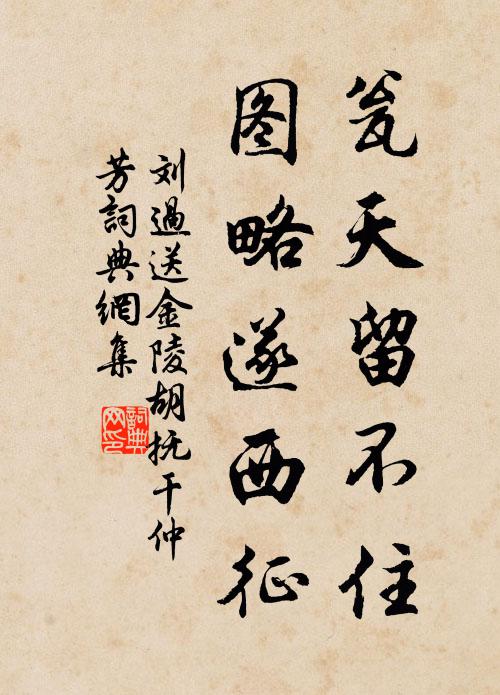 瓮天留不住
图略遂西征
刘過送金陵胡抚干仲
芳詞典網集
詞典
网印